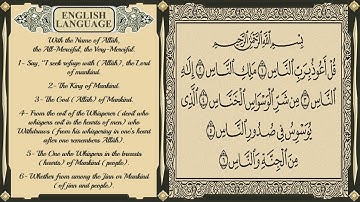 ENGLISH
LANGUAGE
With the Name of Allâh,
the All-Merciful, the Very-Merciful.
1- Say, "I seek refuge with ( Allâh ), the Lord
of mankind.
2- The King of Mankind.
3- The God ( Allâh ) of Mankind.
4- From the evil of the Whisperer ( devil who
whispers evil in the hearts of men ) who
Withdraws ( from his whispering in one's heart
after one remembers Allâh ).
5- The One who Whispers in the breasts
( hearts ) of Mankind ( people ).
6- Whether from among the Jinn or Mankind
( of jinn and people ).
بِسْمِ اللَّهِ الرَّحْمَٰنِ الرَّحِيمِ
قُلْ أَعُوذُ بِرَبِّ النَّاسِ ۝ مَلِكِ النَّاسِ ۝ إِلَٰهِ
النَّاسِ ۝ مِن شَرِّ الْوَسْوَاسِ الْخَنَّاسِ ۝ الَّذِي
يُوَسْوِسُ فِي صُدُورِ النَّاسِ ۝
مِنَ الْجِنَّةِ وَالنَّاسِ ۝